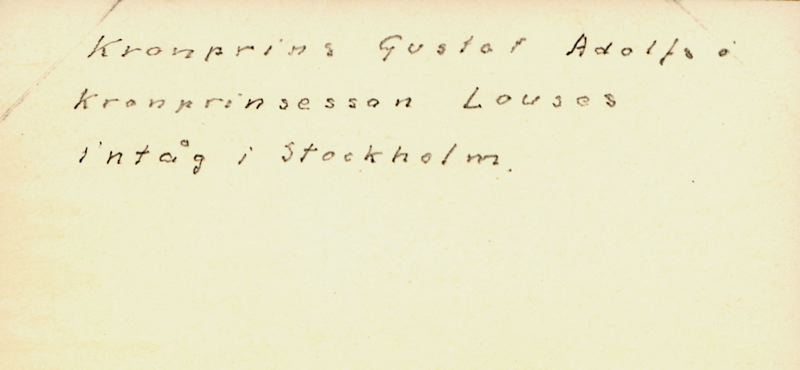 Kronprins Gustaf Adolfs o
Kronprinsessan Louses
intåg i Stockholm.